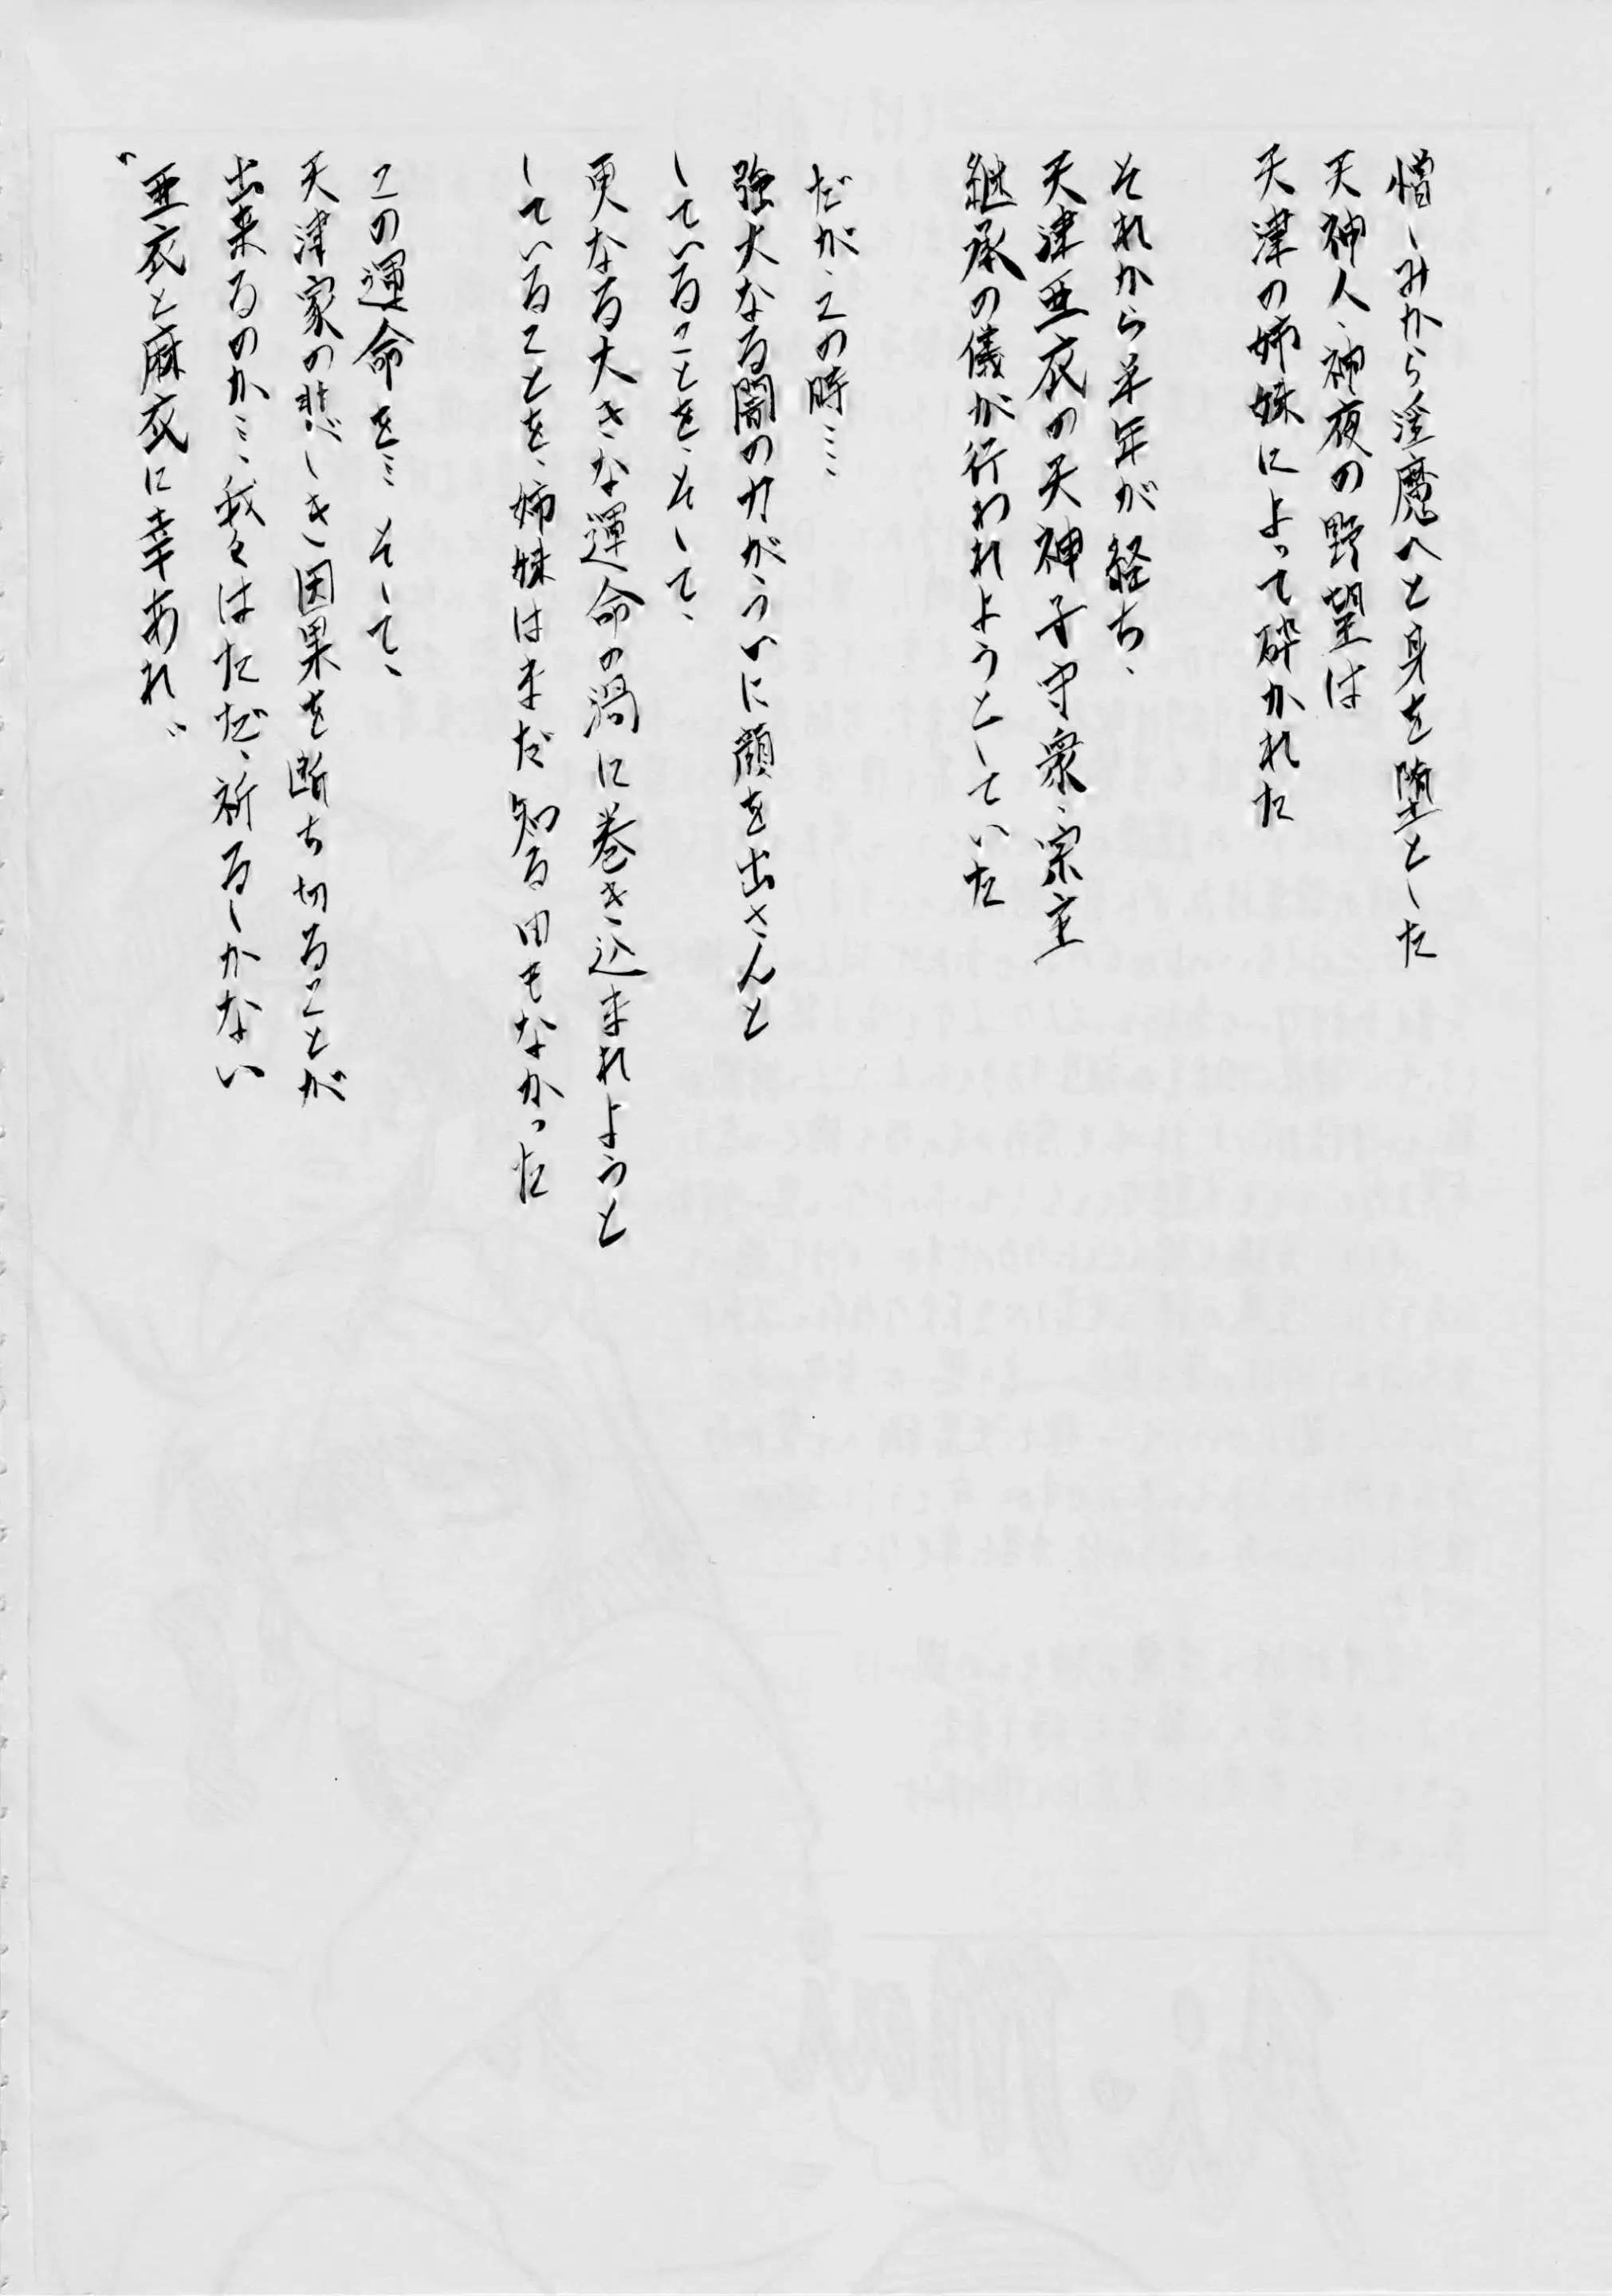 憎しみから淫魔へと身を堕とした
天神人、神夜の野望は
天津の姉妹によって砕かれた
それから半年が経ち、
天津亜衣の天神子守衆、宗主
継承の儀が行われようとしていた
だが、この時……
強大なる闇の力がついに顔を出さんと
していることを、そして、
更なる大きな運命の渦に巻き込まれようと
していることを、姉妹はまだ知る由もなかった
この運命を… そして、
天津家の悲しき因果を断ち切ることが
出来るのか…、我々はただ、祈るしかない
〝亜衣と麻衣に幸あれ〟